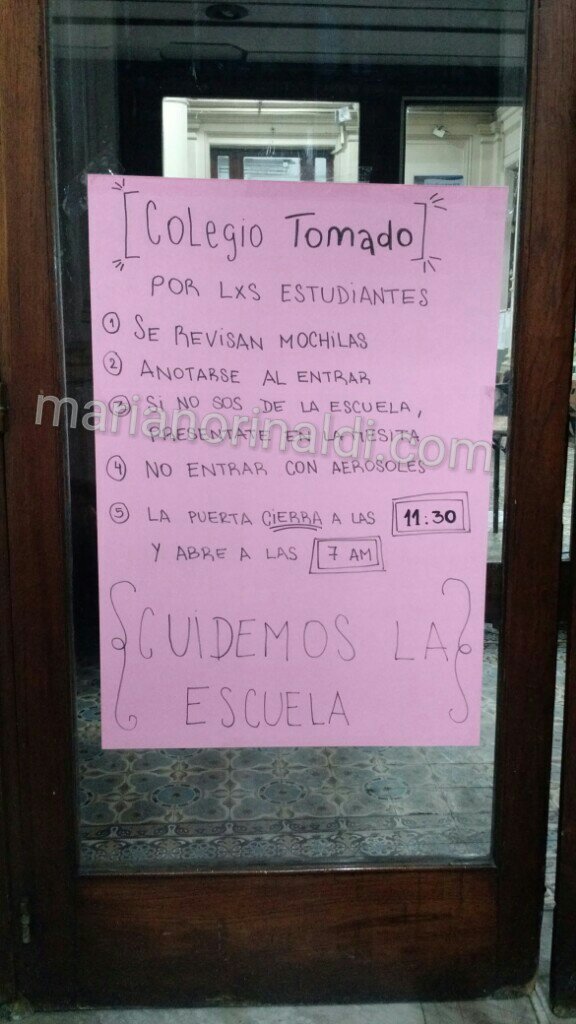 [Colegio Tomado]
POR LXS ESTUDIANTES
① SE REVISAN MOCHILAS
② ANOTARSE AL ENTRAR
③ Si NO SOS DE LA ESCUELA,
PRESENTATE EN LA MESITA
marianorinaldi.com
④ NO ENTRAR CON AEROSOLES
⑤ LA PUERTA CIERRA A LAS 11:30
Y ABRE A LAS 7 AM
CUIDEMOS LA
ESCUELA